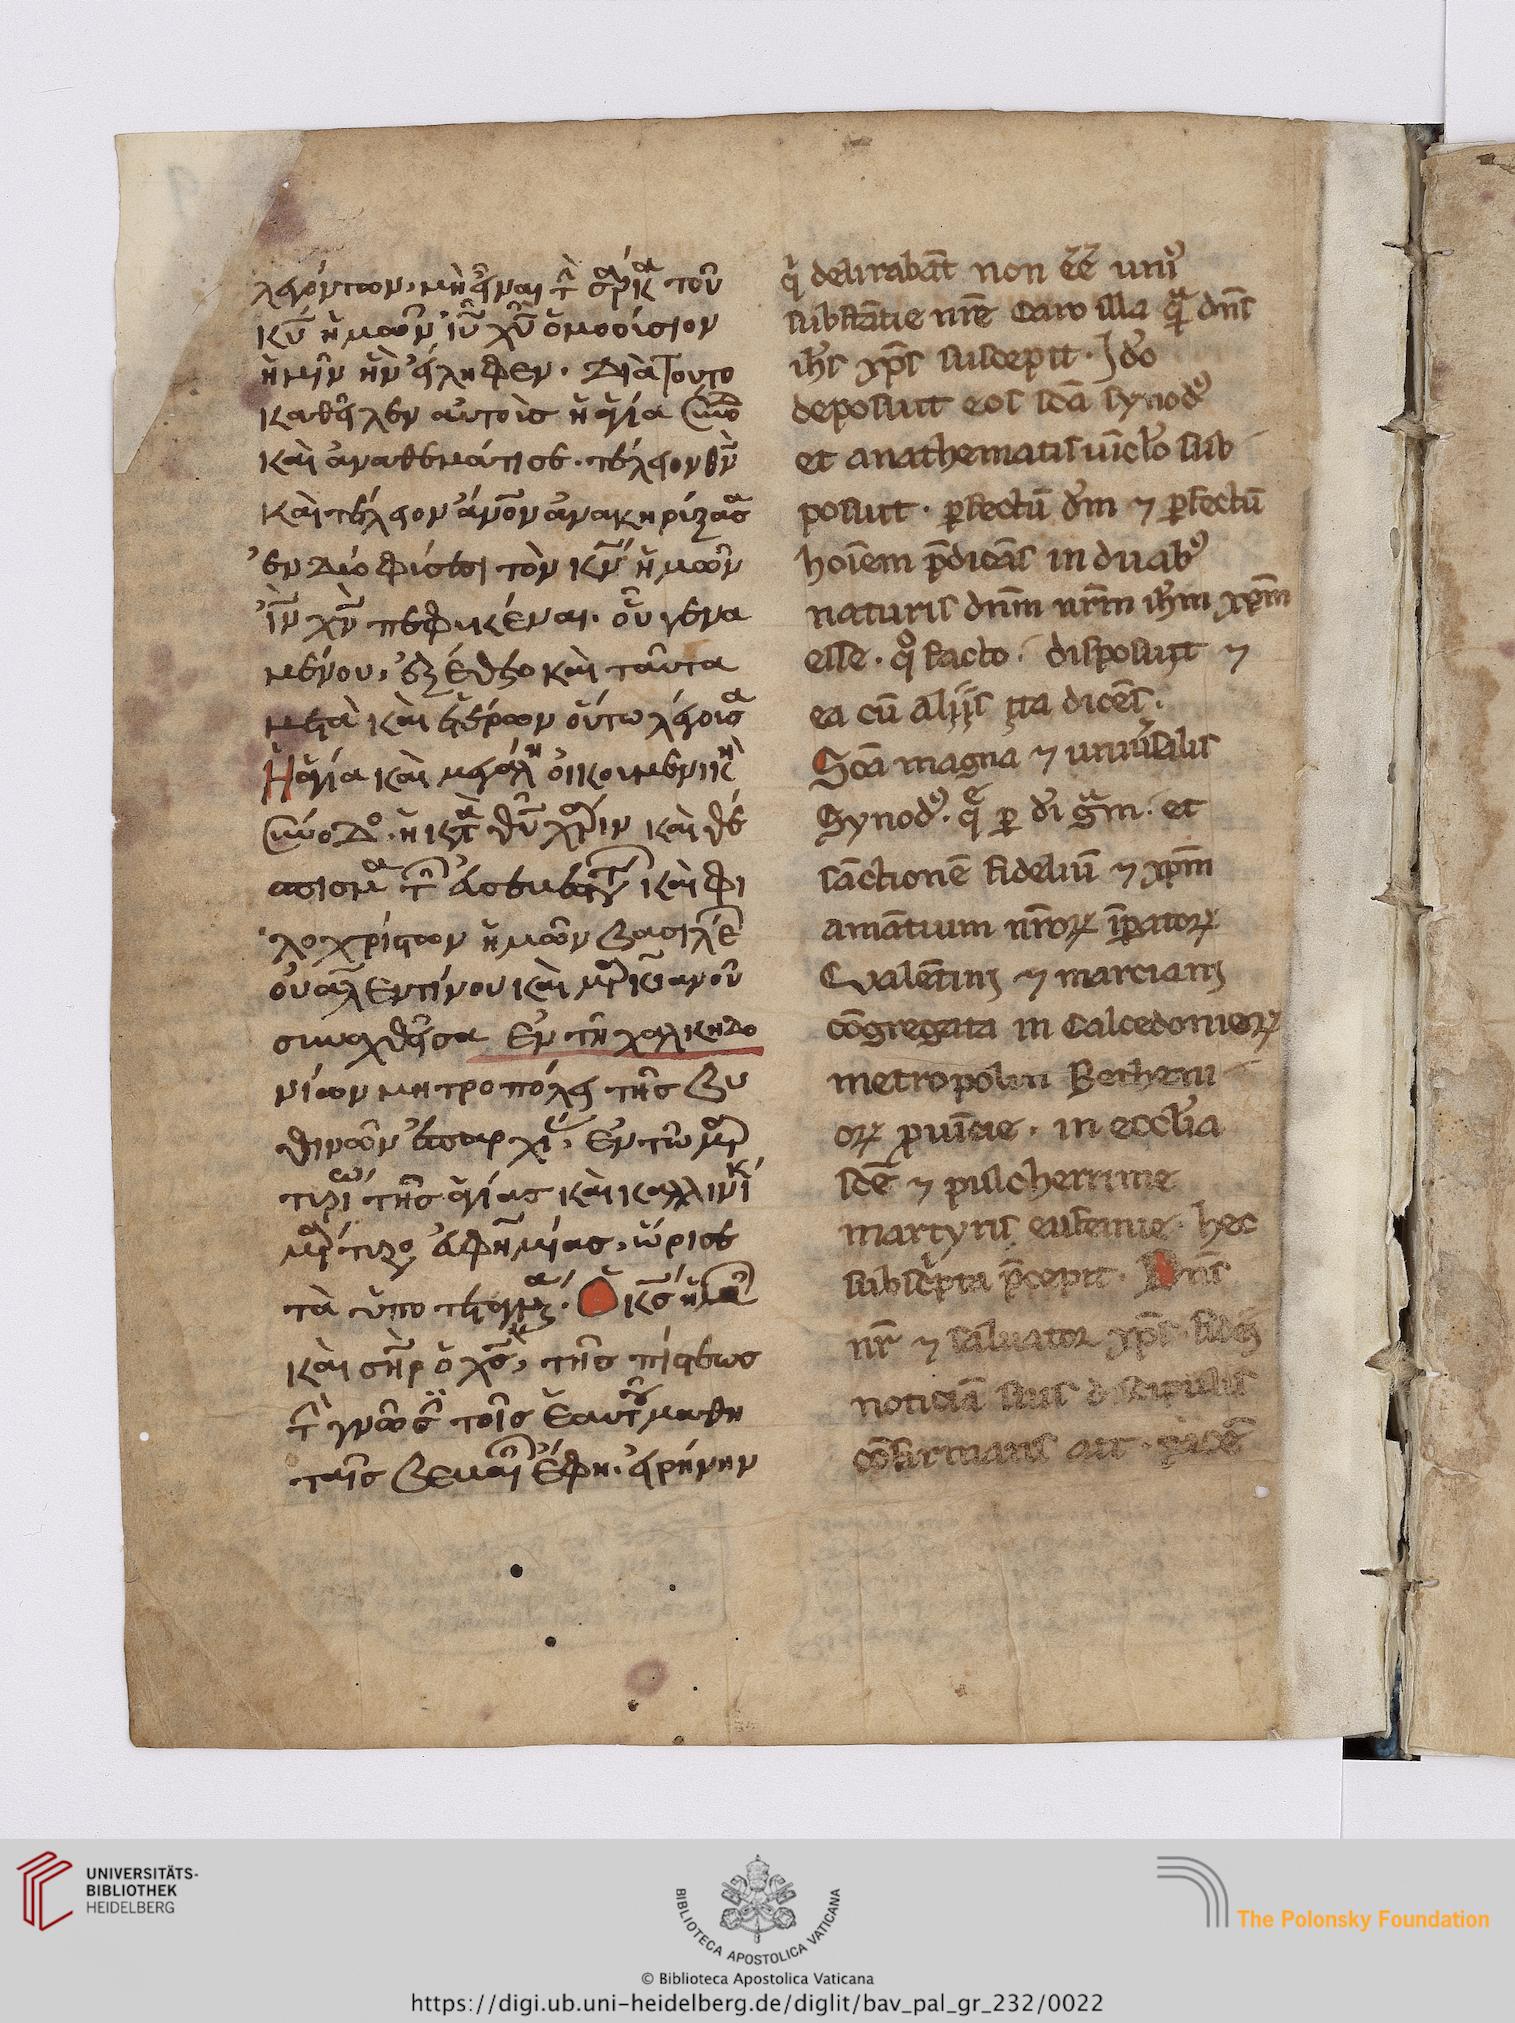 λεγόντων, μὴ εἶναι τ̀ σάρκα τοῦ
κυ̅ ἡμῶν ιυ̅ χυ̅ ὁμοούσιον
ἡμῖν ἣν εἴληφεν. διὰ τοῦτο
καθεῖλεν αὐτοὺς ἡ ἁγία συνο
καὶ ἀναθεμάτισε. τέλειον θν̅
καὶ τέλειον ἄνο̅ν ἀνακηρύξασ
ἐν δύο φύσεσι τὸν κν̅ ἡμῶν
ιν̅ χν̅ πεφικέναι. οὗ γενα
μένου, ἐξέθετο καὶ ταῦτα
μετὰ καὶ ἑτέρων οὕτω λέγουσα
Ἡ ἁγία καὶ μεγάλη οἰκουμενικὴ
σύνοδο. ἡ κατὰ θυ̅ χάριν καὶ θέ
σπισμα τ̅ εὐσεβεστ καὶ φι
λοχρίστων ἡμῶν βασιλέ
οὐαλεντίνου καὶ μαρκιανοῦ
συναχθεῖσα ἐν τῆ χαλκηδο
νίων μητροπόλει τῆς βυ
θινῶν ἐπαρχί, ἐν τῶ μαρ
τυρίω τῆς ἁγίας καὶ καλλινίκ
μάρτυρο εὐφημίας, ὥρισε
τὰ ὑποτεταγμένα. Ὁ κσ̅ ἡμῶ
καὶ σηρ̅ ὁ χσ̅, τῆς πίστεως
τ̀ γνῶσ τοῖς ἑαυτοῦ μαθη
ταῖς βεβαι ἔφη. εἰρήνην
q̓ delirabāt non e̅e̅ uni᾽
substātie nr̅e Caro illa q̄ dn̅s
ih̅s xp̅s suscepit. Id̓o
deposuit eos sc̅a synod᾽
et anathematis uīcl̓o sub
posuit. ꝑfectū d̓m ⁊ ꝑfectū
hoīem p̅dicās in duab᾽
naturis dn̅m nr̅m ih̅m xp̅m
esse. q̊ facto. disposuit ⁊
ea cū alijs ita dicēs.
Sc̅a magna ⁊ uniu̓salis
Synod᾽. q̄ ꝑ d̓i gr̅am. et
sāctionē fidelīū ⁊ xp̅m
amātium nr̅oꝝ īꝑatoꝝ
Valētini ⁊ marciani
cōgregata in Calcedonieoꝝ
metropolim Bethem
oꝝ ꝓuīcie. in eccl̓ia
sc̅e ⁊ pulcherrime
martyris eufemie. hec
subsc̓pta p̅cepit. Dn̅s
nr̅ ⁊ saluator xp̅s. fidei
noticiā suis discipulis
cōfirmans ait. pacē
UNIVERSITÄTS-
BIBLIOTHEK
HEIDELBERG
BIBLIOTECA APOSTOLICA VATICANA
The Polonsky Foundation
© Biblioteca Apostolica Vaticana
https://digi.ub.uni-heidelberg.de/diglit/bav_pal_gr_232/0022